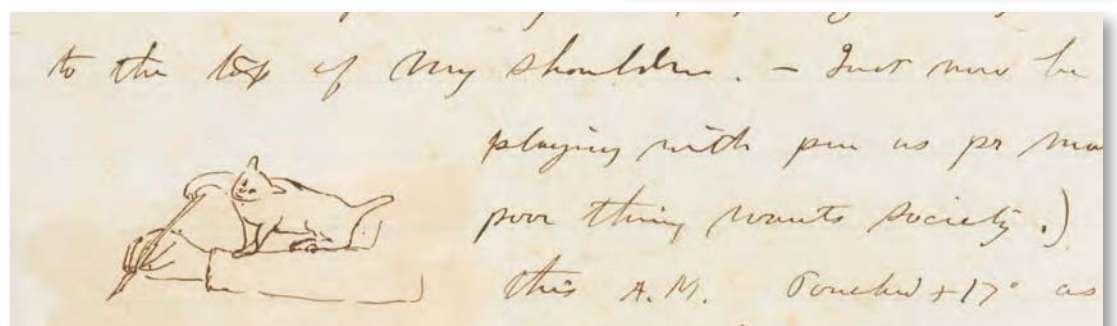 to the top of my shoulders. – Just now he
playing with pen as pr
poor thing wants society.)
this A.M. Touched +17° as